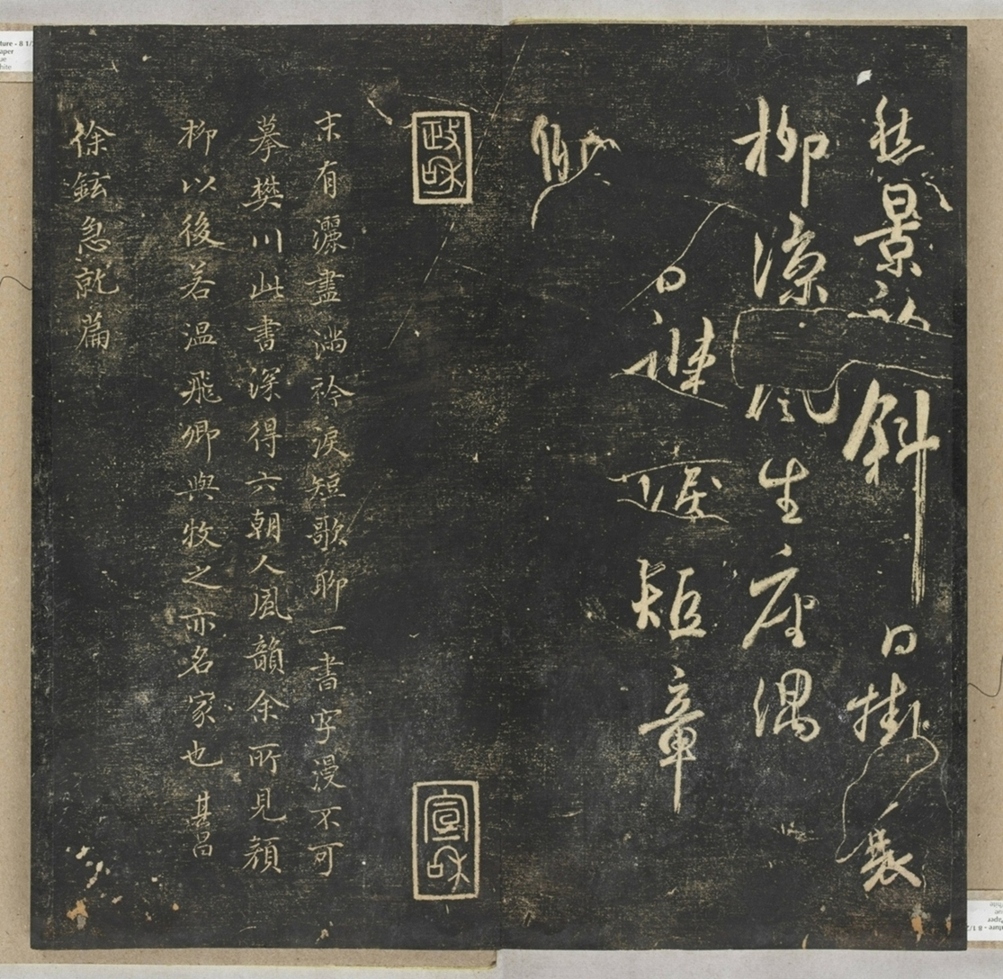 愁景初斜日掛衰
柳涼風生座隅
短章
政和
宣和
末有灑盡滿衿淚短歌聊一書字漫不可
摹樊川此書深得六朝人風韻余所見顏
柳以後若溫飛卿與牧之亦名家也 其昌
徐鉉急就篇